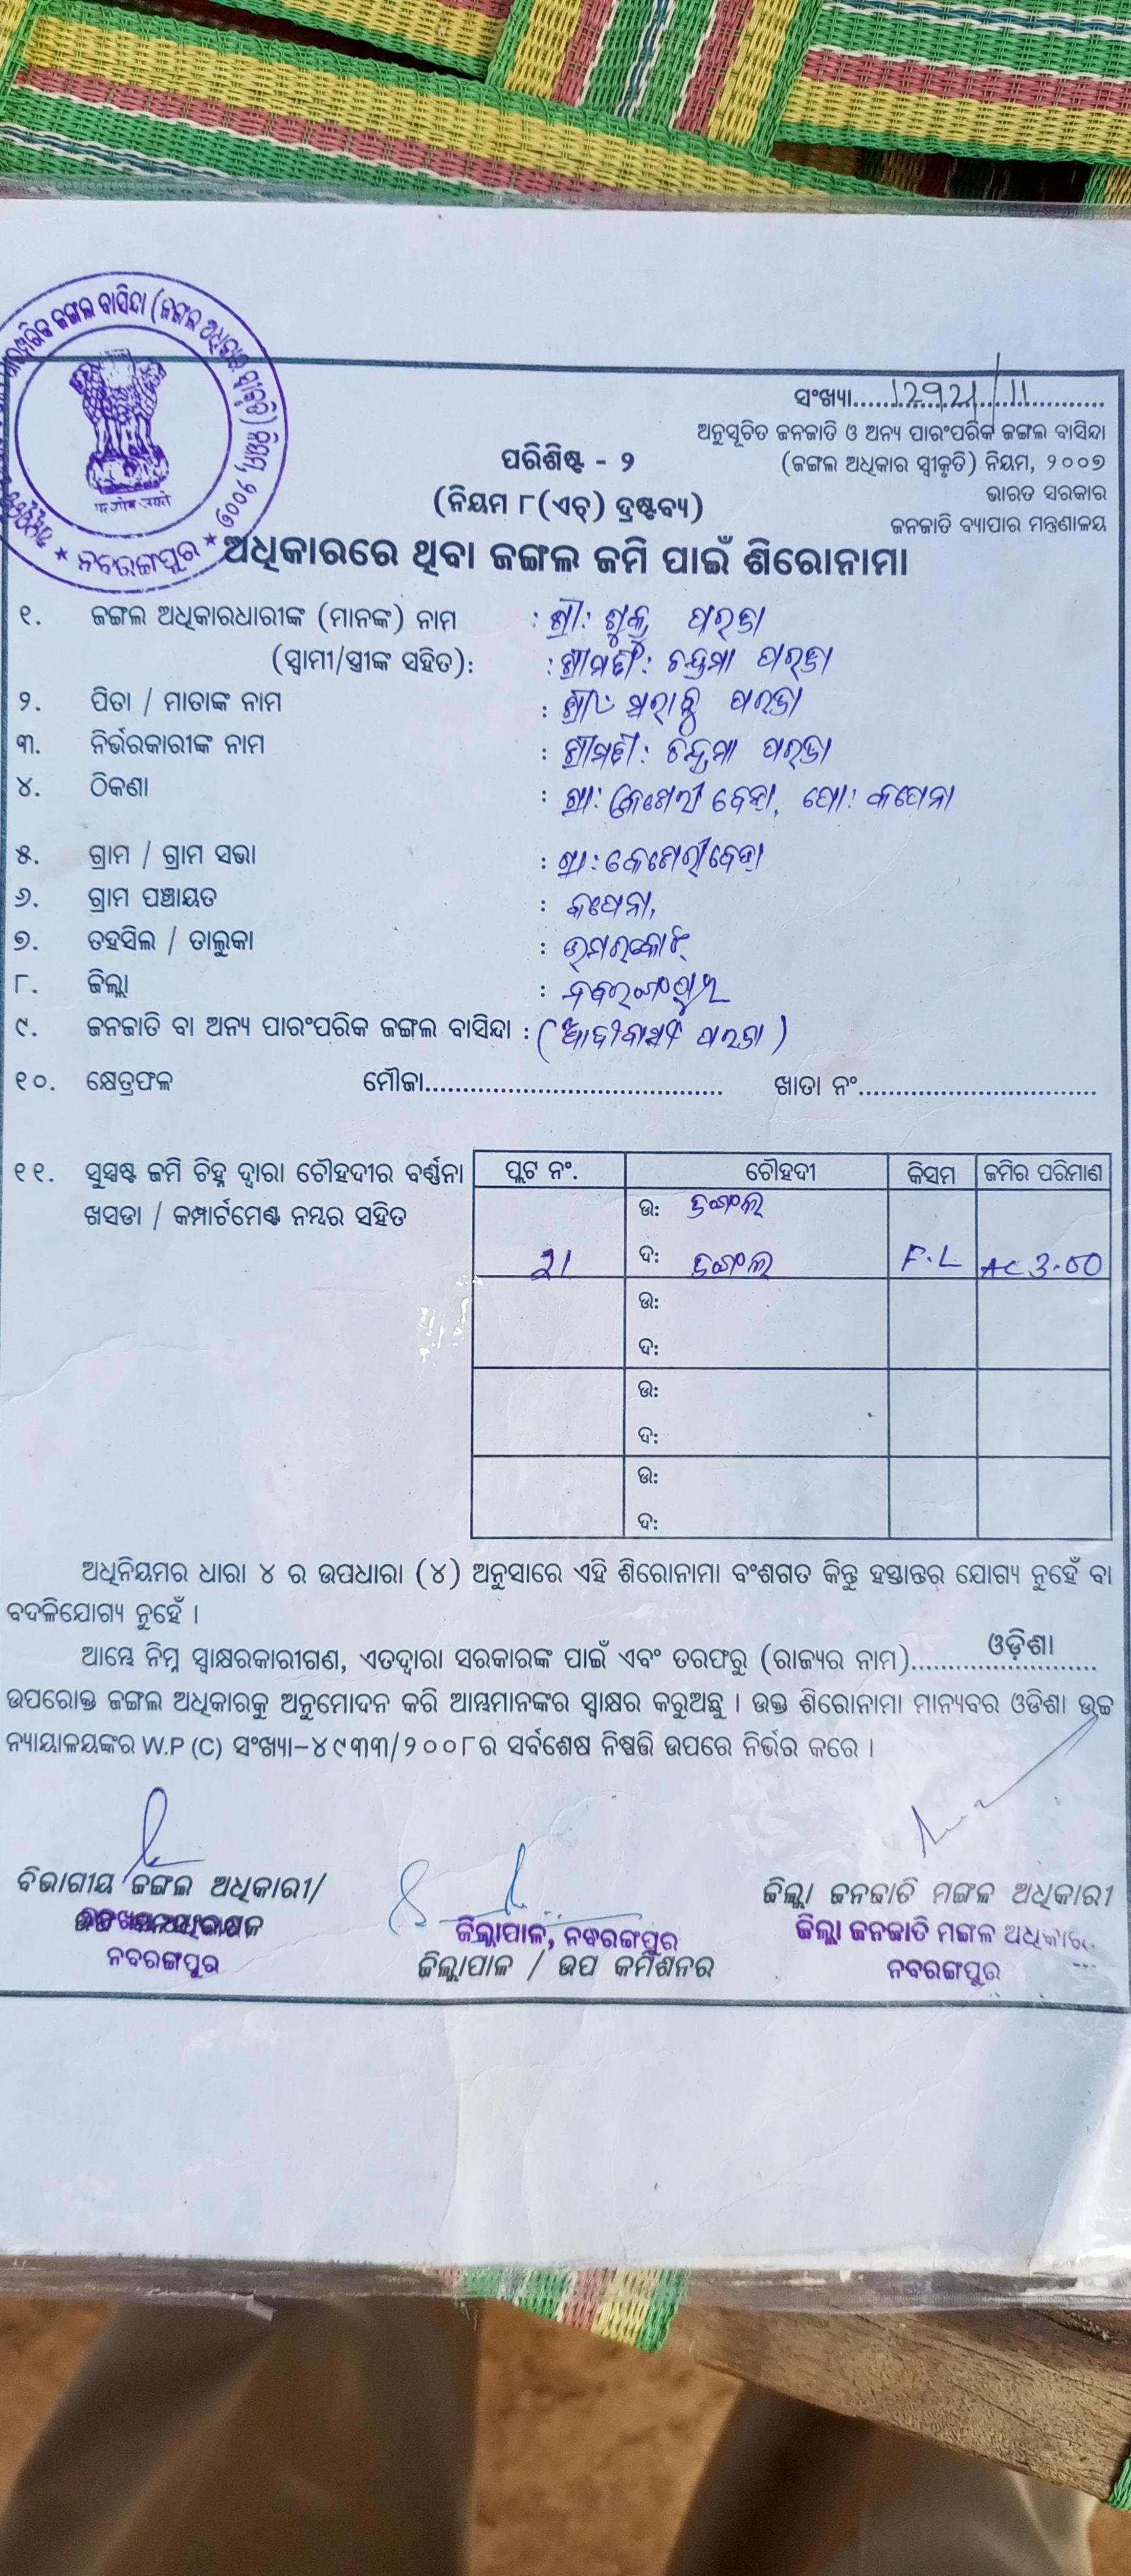 ପାରଂପରିକ ଜଙ୍ଗଲ ବାସିନ୍ଦା (ଜଙ୍ଗଲ ଅଧିକାର ସ୍ୱୀକୃତି) ନିୟମ, ୨୦୦୭
★ ନବରଙ୍ଗପୁର ★
ସଂଖ୍ୟା....12921/11....
ଅନୁସୂଚିତ ଜନଜାତି ଓ ଅନ୍ୟ ପାରଂପରିକ ଜଙ୍ଗଲ ବାସିନ୍ଦା
(ଜଙ୍ଗଲ ଅଧିକାର ସ୍ୱୀକୃତି) ନିୟମ, ୨୦୦୭
ଭାରତ ସରକାର
ଜନଜାତି ବ୍ୟାପାର ମନ୍ତ୍ରଣାଳୟ
ପରିଶିଷ୍ଟ - ୨
(ନିୟମ ୮(ଏଚ୍) ଦ୍ରଷ୍ଟବ୍ୟ)
ଅଧିକାରରେ ଥିବା ଜଙ୍ଗଲ ଜମି ପାଇଁ ଶିରୋନାମା
୧. ଜଙ୍ଗଲ ଅଧିକାରଧାରୀଙ୍କ (ମାନଙ୍କ) ନାମ : ଶ୍ରୀ: ଶୁକ୍ରୁ ପରଜା
(ସ୍ୱାମୀ/ସ୍ତ୍ରୀଙ୍କ ସହିତ): : ଶ୍ରୀମତୀ: ଚନ୍ଦ୍ରମା ପରଜା
୨. ପିତା / ମାତାଙ୍କ ନାମ : ଶ୍ରୀ: ପରଜା
୩. ନିର୍ଭରକାରୀଙ୍କ ନାମ : ଶ୍ରୀମତୀ: ଚନ୍ଦ୍ରମା ପରଜା
୪. ଠିକଣା : ଗ୍ରା: ବେଡ଼ା, ପୋ: କପେନା
୫. ଗ୍ରାମ / ଗ୍ରାମ ସଭା : ଗ୍ରା:
୬. ଗ୍ରାମ ପଞ୍ଚାୟତ : କପେନା,
୭. ତହସିଲ / ତାଲୁକା : ଉମରକୋଟ୍
୮. ଜିଲ୍ଲା : ନବରଙ୍ଗପୁର
୯. ଜନଜାତି ବା ଅନ୍ୟ ପାରଂପରିକ ଜଙ୍ଗଲ ବାସିନ୍ଦା : (ଆଦୀବାସୀ ପରଜା)
୧୦. କ୍ଷେତ୍ରଫଳ ମୌଜା........................................ ଖାତା ନଂ................................
୧୧. ସୁସ୍ପଷ୍ଟ ଜମି ଚିହ୍ନ ଦ୍ୱାରା ଚୌହଦୀର ବର୍ଣ୍ଣନା
ଖସଡା / କମ୍ପାର୍ଟମେଣ୍ଟ ନମ୍ବର ସହିତ
ପ୍ଲଟ ନଂ. ଚୌହଦୀ କିସମ ଜମିର ପରିମାଣ
ଉ: ଜଙ୍ଗଲ
21 ଦ: ଜଙ୍ଗଲ F.L AC 3.00
ଉ:
ଦ:
ଉ:
ଦ:
ଉ:
ଦ:
ଅଧିନିୟମର ଧାରା ୪ ର ଉପଧାରା (୪) ଅନୁସାରେ ଏହି ଶିରୋନାମା ବଂଶଗତ କିନ୍ତୁ ହସ୍ତାନ୍ତର୍ ଯୋଗ୍ୟ ନୁହେଁ ବା
ବଦଳିଯୋଗ୍ୟ ନୁହେଁ ।
ଆମ୍ଭେ ନିମ୍ନ ସ୍ୱାକ୍ଷରକାରୀଗଣ, ଏତଦ୍ୱାରା ସରକାରଙ୍କ ପାଇଁ ଏବଂ ତରଫରୁ (ରାଜ୍ୟର ନାମ)......ଓଡ଼ିଶା......
ଉପରୋକ୍ତ ଜଙ୍ଗଲ ଅଧିକାରକୁ ଅନୁମୋଦନ କରି ଆମ୍ଭମାନଙ୍କର ସ୍ୱାକ୍ଷର କରୁଅଛୁ । ଉକ୍ତ ଶିରୋନାମା ମାନ୍ୟବର ଓଡିଶା ଉଚ୍ଚ
ନ୍ୟାୟାଳୟଙ୍କର W.P (C) ସଂଖ୍ୟା-୪୯୩୩/୨୦୦୮ର ସର୍ବଶେଷ ନିଷ୍ପତ୍ତି ଉପରେ ନିର୍ଭର କରେ ।
ବିଭାଗୀୟ ଜଙ୍ଗଲ ଅଧିକାରୀ/
ନବରଙ୍ଗପୁର
ଜିଲ୍ଲାପାଳ, ନବରଙ୍ଗପୁର
ଜିଲ୍ଲାପାଳ / ଉପ କମିଶନର
ଜିଲ୍ଲା ଜନଜାତି ମଙ୍ଗଳ ଅଧିକାରୀ
ଜିଲ୍ଲା ଜନଜାତି ମଙ୍ଗଳ ଅଧିକାରୀ
ନବରଙ୍ଗପୁର